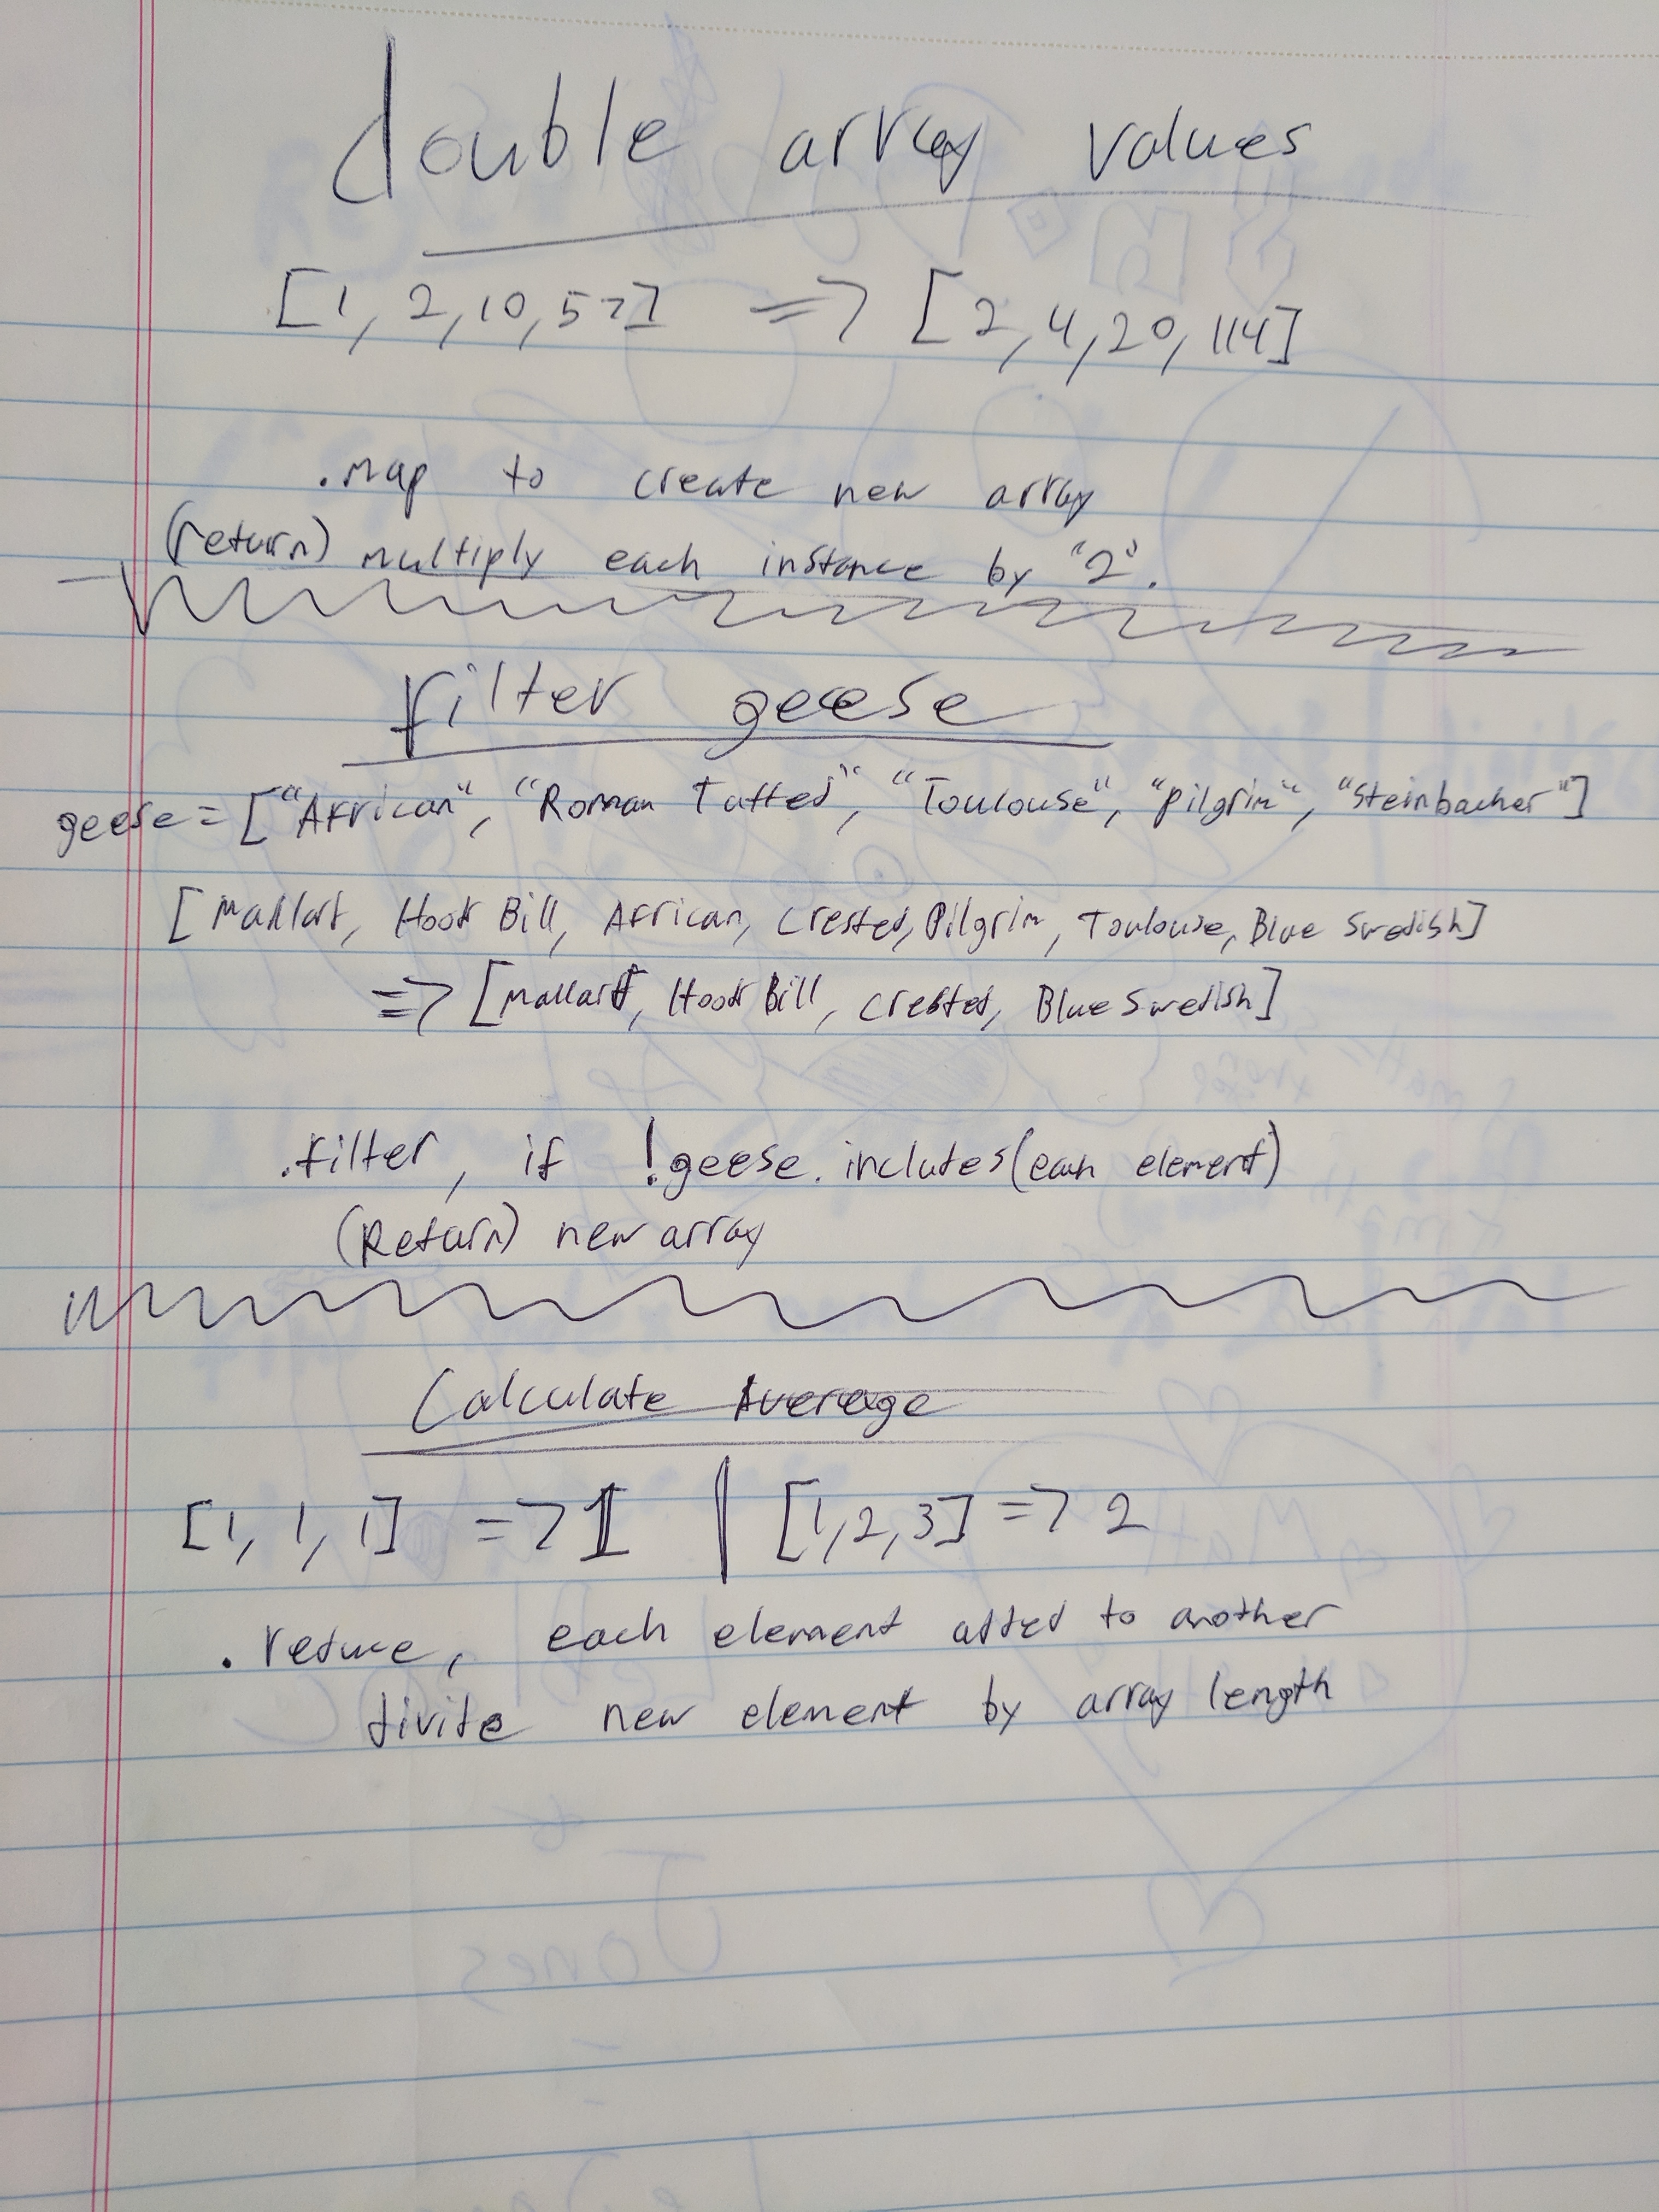 double array values
[1, 2, 10, 57] => [2, 4, 20, 114]
.map to create new array
(return) multiply each instance by "2".
filter geese
geese = ["African", "Roman Tufted", "Toulouse", "Pilgrim", "Steinbacher"]
[Mallard, Hook Bill, African, Crested, Pilgrim, Toulouse, Blue Swedish]
=> [Mallard, Hook Bill, Crested, Blue Swedish]
.filter, if !geese.includes(each element)
(Return) new array
Calculate Average
[1, 1, 1] => 1 | [1,2,3] => 2
.reduce, each element added to another
divide new element by array length
Jones